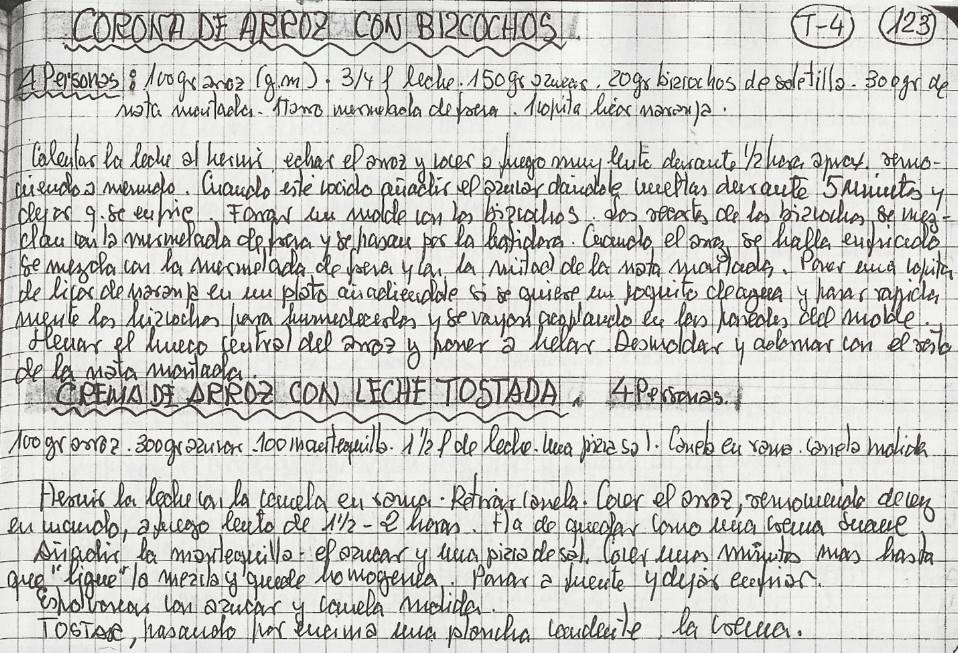 CORONA DE ARROZ CON BIZCOCHOS. T-4 123
4 Personas: 100gr arroz (g.m). 3/4 l leche. 150gr azucar. 20gr bizcochos de soletilla. 300gr de
nata montada. 1 tarro mermelada de pera. 1 copita licor naranja.
Calentar la leche al hervir, echar el arroz y cocer a fuego muy lento durante 1/2 hora aprox. remo-
viendo a menudo. Cuando esté cocido añadir el azucar dandole vueltas durante 5 minutos y
dejar q. se enfrie. Forrar un molde con los bizcochos. Los recortes de los bizcochos, se mez-
clan con la mermelada de pera y se pasan por la batidora. Cuando el arroz se halla enfriado
se mezcla con la mermelada de pera y con la mitad de la nata montada. Poner una copita
de licor de naranja en un plato añadiendole si se quiere un poquito de agua y pasar rapida
mente los bizcochos para humedecerlos y se vayan acoplando en las paredes del molde.
Llenar el hueco central del arroz y poner a helar. Desmoldar y adornar con el resto
de la nata montada.
CREMA DE ARROZ CON LECHE TOSTADA. 4 Personas.
100gr arroz. 300gr azucar. 100 mantequilla. 1 1/2 l de leche. Una pizca sal. Canela en rama. Canela molida
Hervir la leche con la canela en rama. Retirar canela. Cocer el arroz, removiendo de vez
en cuando, a fuego lento de 1 1/2 - 2 horas. Ha de quedar como una crema suave
Añadir la mantequilla. el azucar y una pizca de sal. Cocer unos minutos mas hasta
que "ligue" la mezcla y quede homogenea. Pasar a fuente y dejar enfriar.
Espolvorear con azucar y canela molida.
TOSTAR, pasando por encima una plancha candente, la crema.